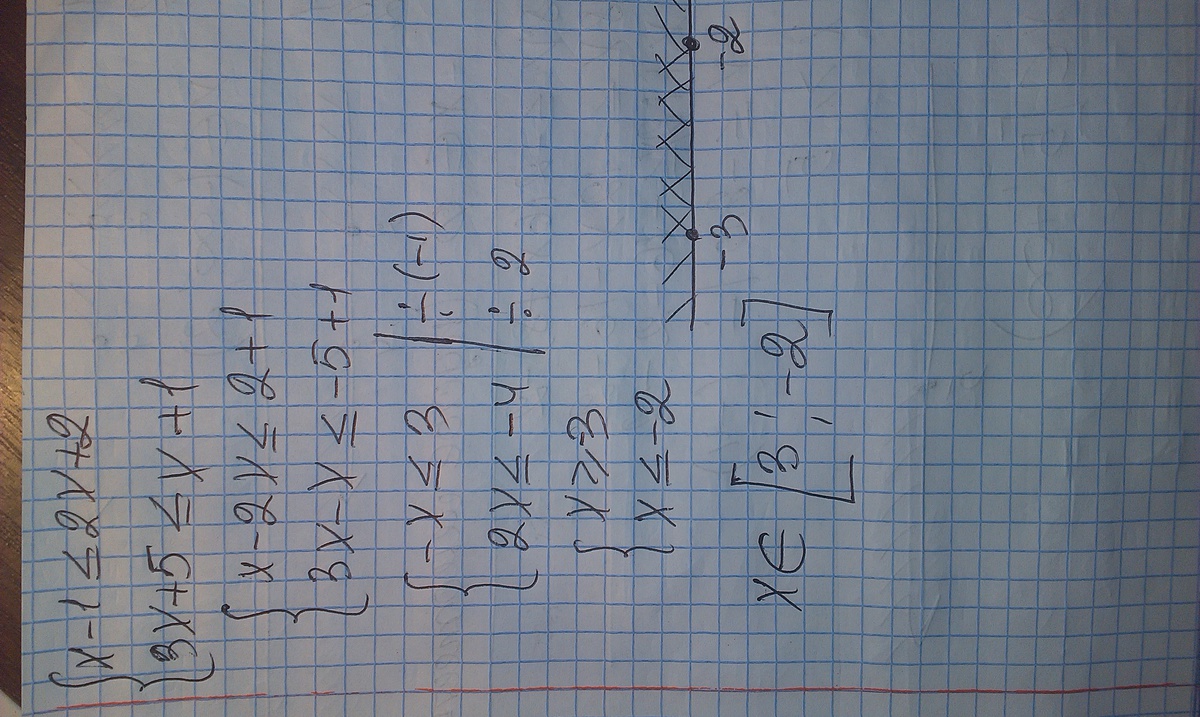 { x - 1 ≤ 2x + 2
{ 3x + 5 ≤ x + 1
{ x - 2x ≤ 2 + 1
{ 3x - x ≤ -5 + 1
{ -x ≤ 3 | ÷ (-1)
{ 2x ≤ -4 | ÷ 2
{ x ≥ 3
{ x ≤ -2
-3 -2
x ∈ [3; -2]